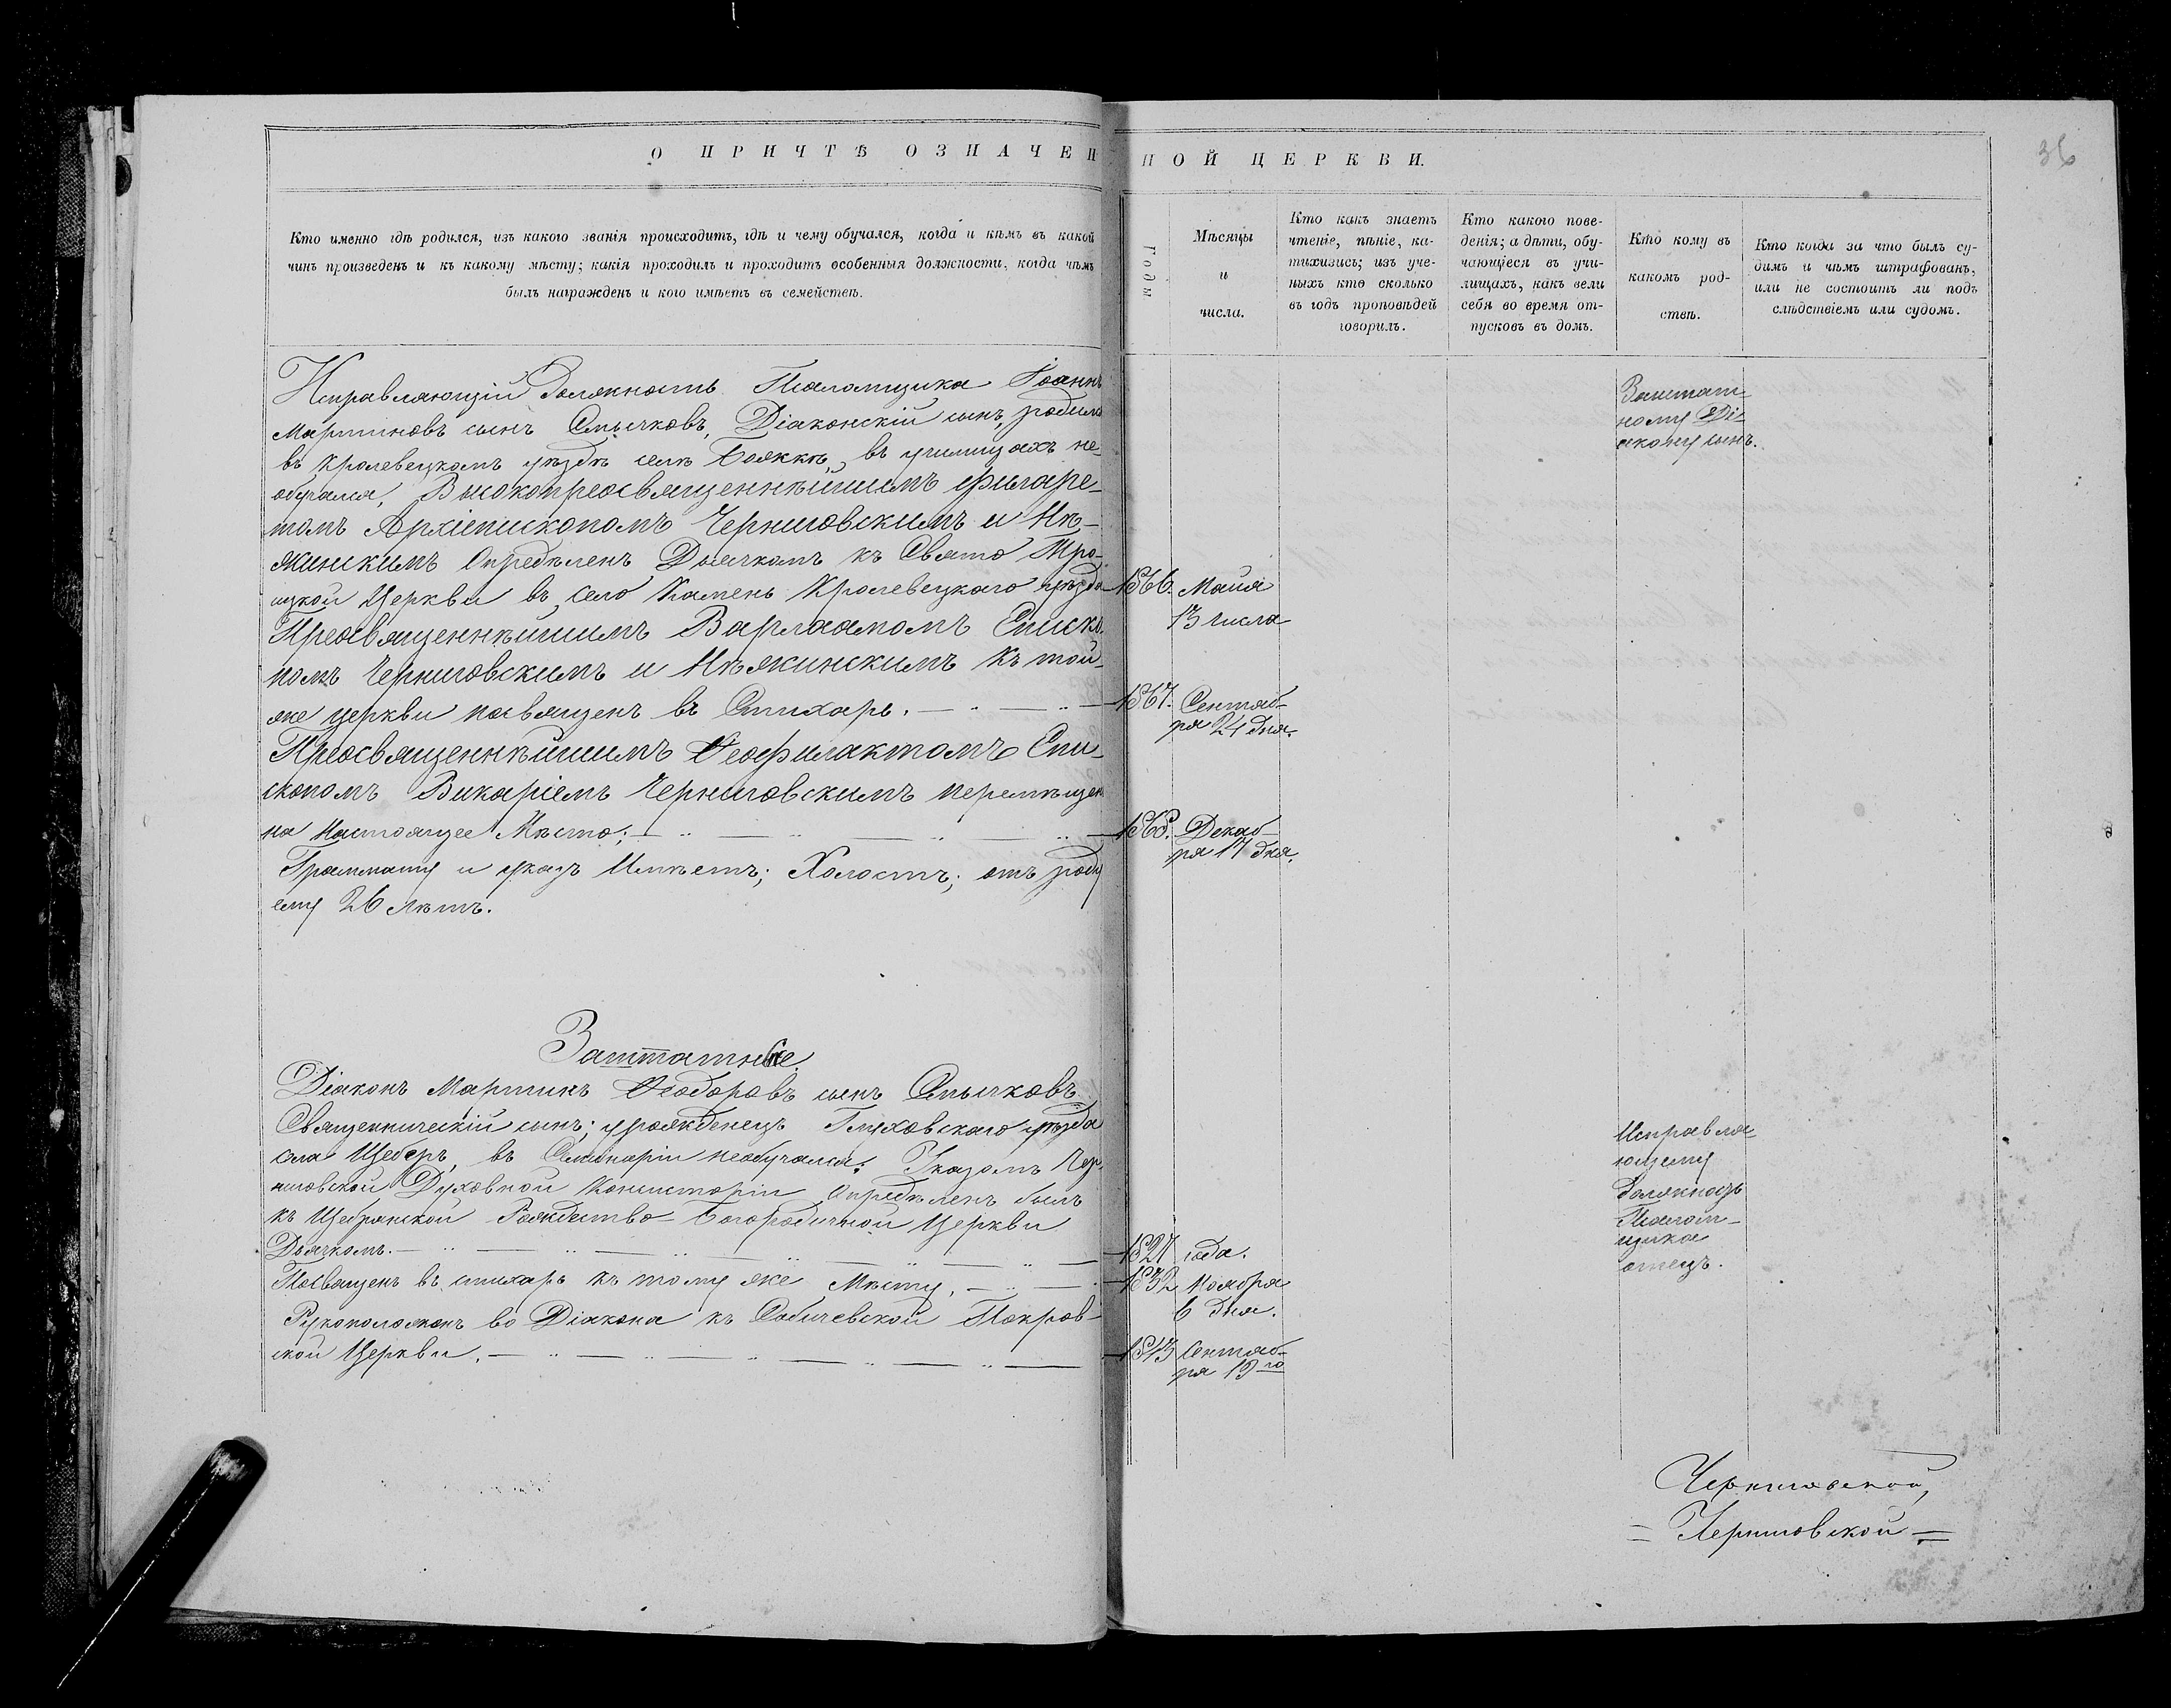 О ПРИЧТѢ ОЗНАЧЕННОЙ ЦЕРКВИ.
36
Кто именно гдѣ родился, изъ какого званія происходитъ, гдѣ и чему обучался, когда и кѣмъ въ какой
чинъ произведенъ и къ какому мѣсту; какія проходилъ и проходитъ особенныя должности, когда чѣмъ
былъ награжденъ и кого имѣетъ въ семействѣ.
Годы
Мѣсяцы
и
числа.
Кто какъ знаетъ
чтеніе, пѣніе, ка-
тихизисъ; изъ уче-
ныхъ кто сколько
въ годъ проповѣдей
говорилъ.
Кто какого пове-
денія; а дѣти, обу-
чающіеся въ учи-
лищахъ, какъ вели
себя во время от-
пусковъ въ домъ.
Кто кому въ
какомъ род-
ствѣ.
Кто когда за что былъ су-
димъ и чѣмъ штрафованъ,
или не состоитъ ли подъ
слѣдствіемъ или судомъ.
Исправляющій должность Псаломщика Іоаннъ
Мартиновъ сынъ Смычковъ, Діаконскій сынъ, родился
въ Кролевецкомъ уѣздѣ селѣ въ училищахъ не
обучался, Высокопреосвященнѣйшимъ Филаре-
томъ Архіепископомъ Черниговскимъ и Нѣ-
жинскимъ Опредѣленъ Дьячкомъ къ Свято Трο-
ицкой Церкви въ село Камень Кролевецкаго уѣзда
1866. Майя
13 числа
Преосвященнѣйшимъ Варлаамомъ Еписко-
помъ Черниговскимъ и Нѣжинскимъ къ той-
же церкви посвященъ въ Стихарь.
1867. Сентяб-
ря 24 дня.
Преосвященнѣйшимъ Ѳеофилактомъ Епи-
скопомъ Викаріемъ Черниговскимъ перемѣщенъ
на Настоящее Мѣсто;
1868. Декаб-
ря 17 дня.
Граммату и указъ Имѣетъ; Холостъ; отъ роду
ему 26 лѣтъ.
Заштат-
ному Ді-
акону сынъ.
Заштатные.
Діаконъ Мартинъ Ѳеодоровъ сынъ Смычковъ
Священническій сынъ; урожденецъ Глуховскаго уѣзда
села Щебръ, въ Семинаріи необучался. Указомъ Чер-
ниговской Духовной Консисторіи Опредѣленъ былъ
къ Щебрянской Рождество-Богородичной Церкви
Дьячкомъ.
1827 года.
Посвященъ въ стихарь къ тому же Мѣсту,
1832 Ноября
6 дня.
Рукоположенъ во Діакона къ Собичевской Покров-
ской Церкви.
Сентяб-
ря 19го
Исправля-
ющему
должность
Псалом-
щика
отецъ.
Черниговской,
= Черниговской =